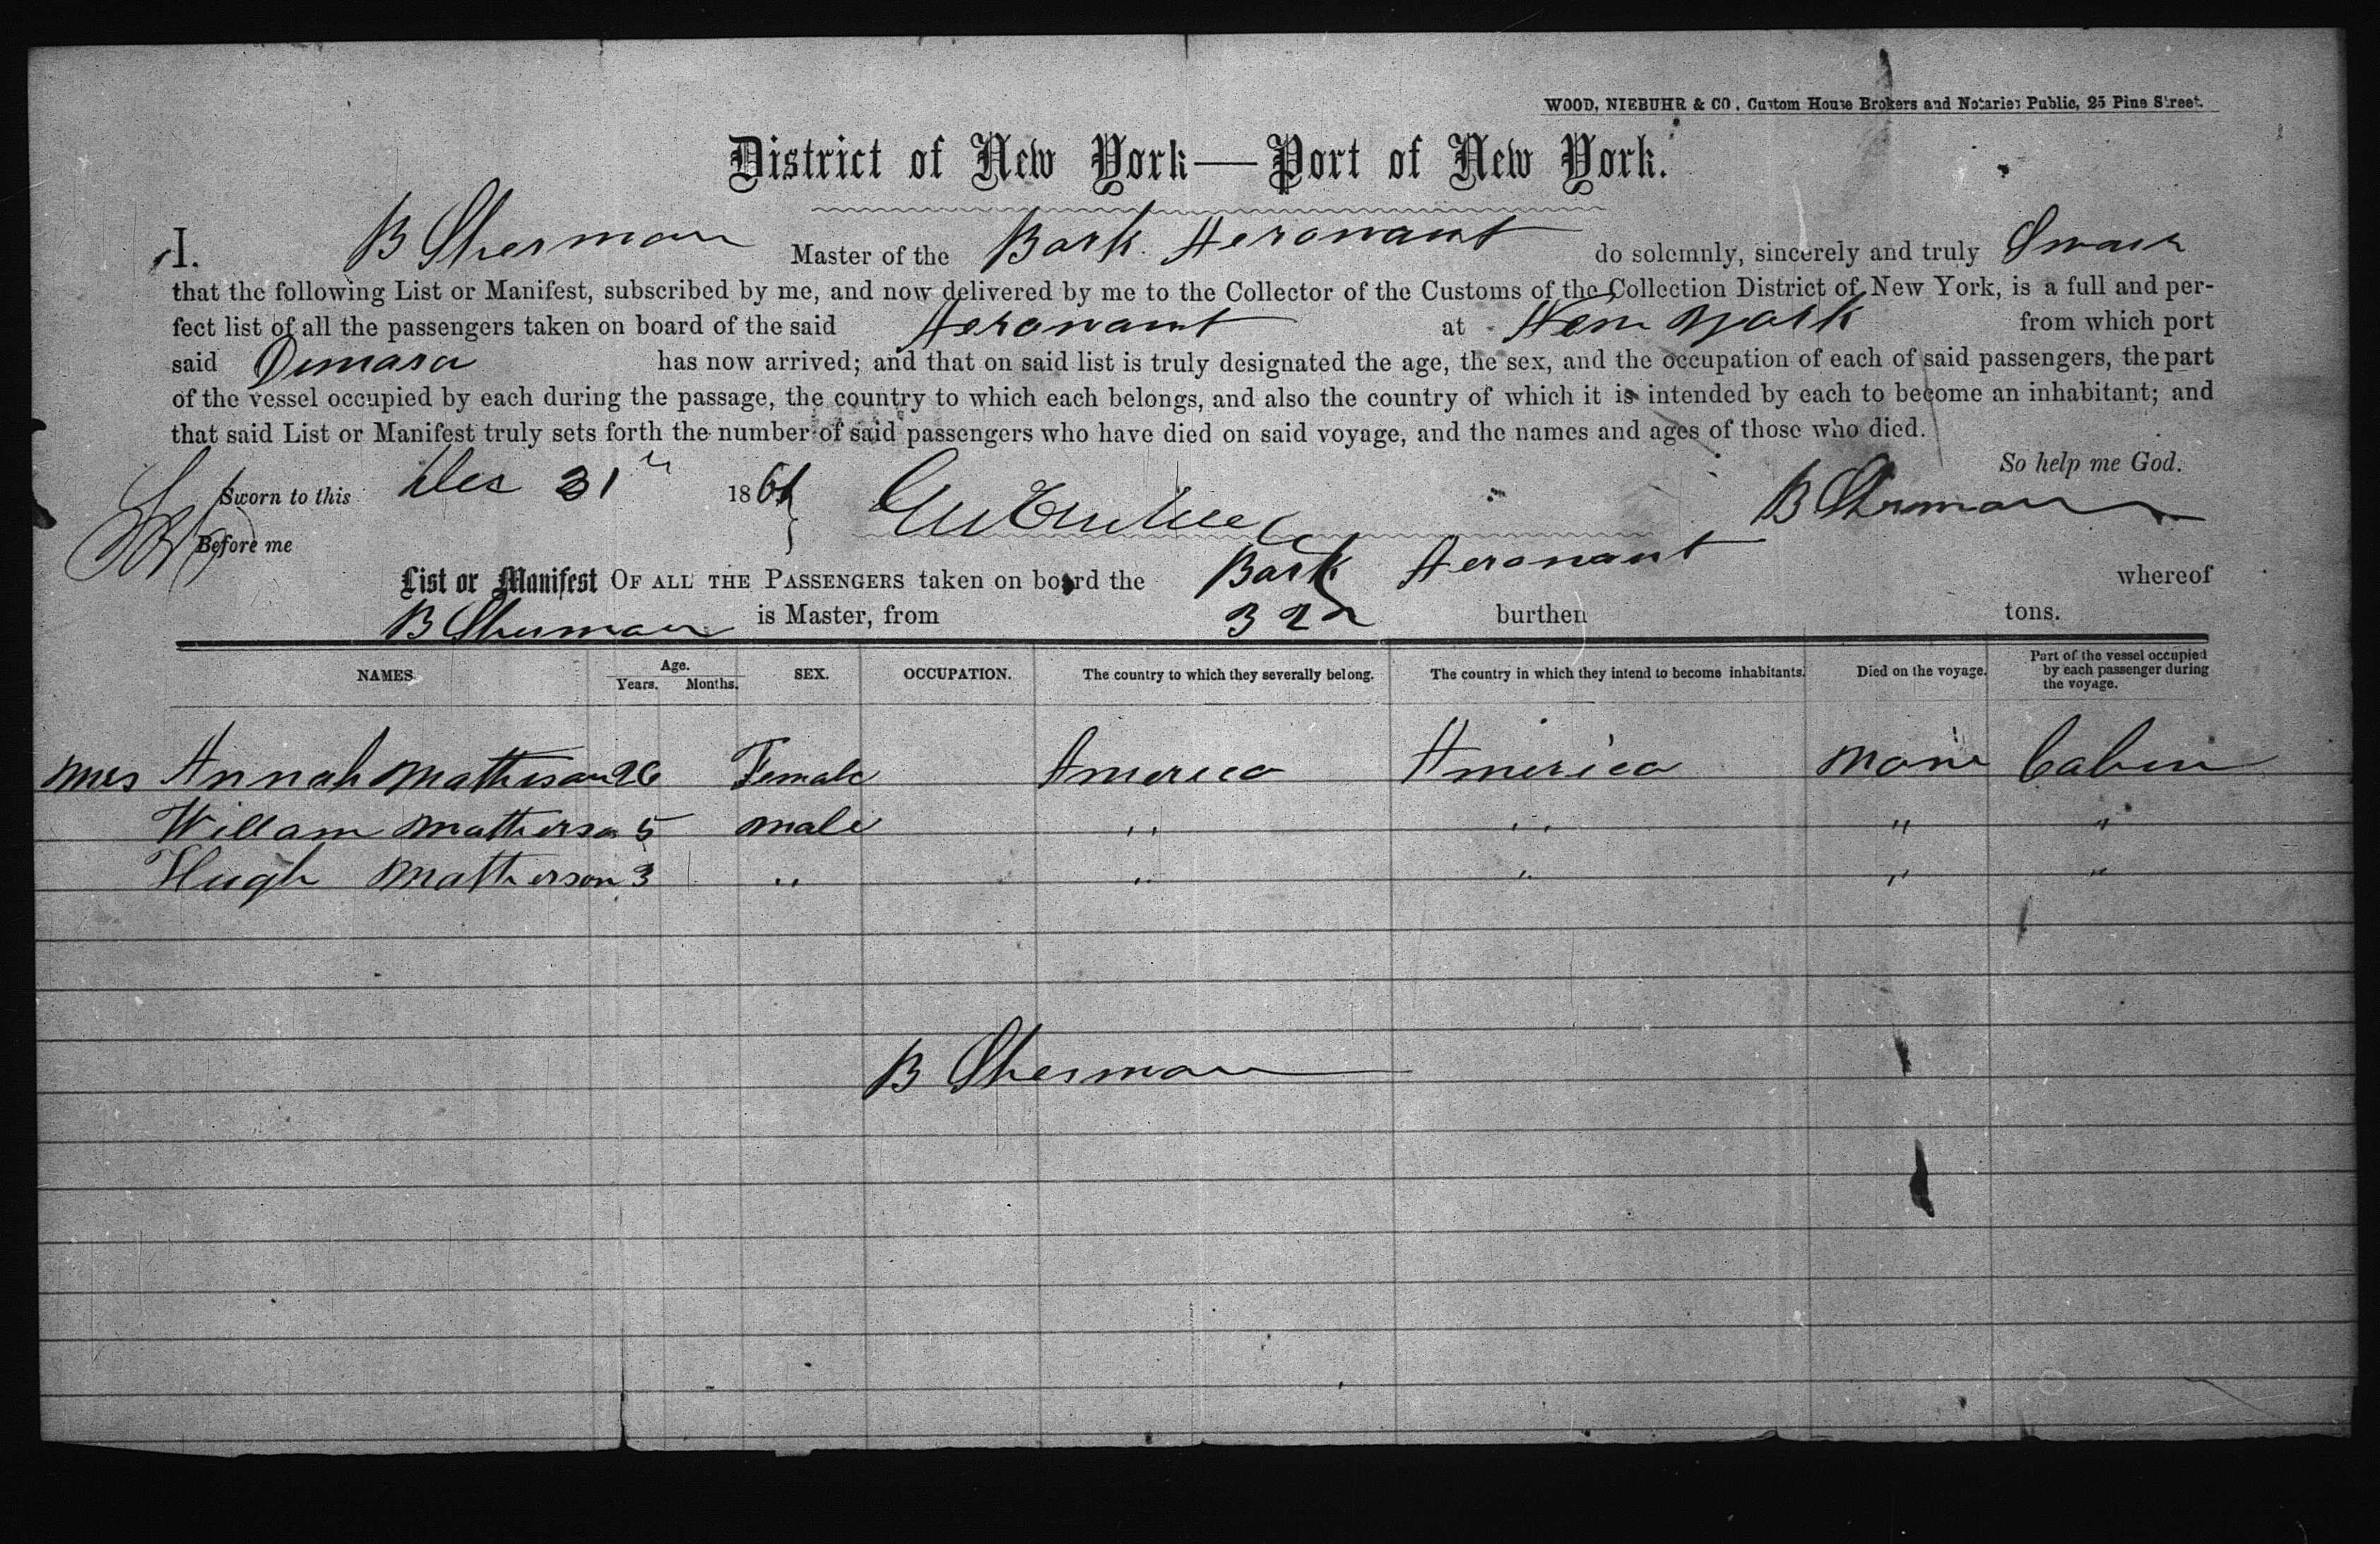 WOOD, NIEBUHR & CO., Custom House Brokers and Notaries Public, 25 Pine Street.
District of New York—Port of New York.
I. B Sherman Master of the Bark Aeronaut do solemnly, sincerely and truly Swear
that the following List or Manifest, subscribed by me, and now delivered by me to the Collector of the Customs of the Collection District of New York, is a full and per-
fect list of all the passengers taken on board of the said Aeronaut at New York from which port
said Demara has now arrived; and that on said list is truly designated the age, the sex, and the occupation of each of said passengers, the part
of the vessel occupied by each during the passage, the country to which each belongs, and also the country of which it is intended by each to become an inhabitant; and
that said List or Manifest truly sets forth the number of said passengers who have died on said voyage, and the names and ages of those who died.
So help me God.
Sworn to this Dec 31 1861 B Sherman
Before me
List or Manifest OF ALL THE PASSENGERS taken on board the Bark Aeronaut whereof
B Sherman is Master, from 322 burthen tons.
NAMES Age. Years. Months. SEX. OCCUPATION. The country to which they severally belong. The country in which they intend to become inhabitants. Died on the voyage. Part of the vessel occupied by each passenger during the voyage.
Mrs Annah Matherson 26 Female America America None Cabin
Willam Matherson 5 male " " " "
Hugh Matherson 3 " " " " "
B Sherman